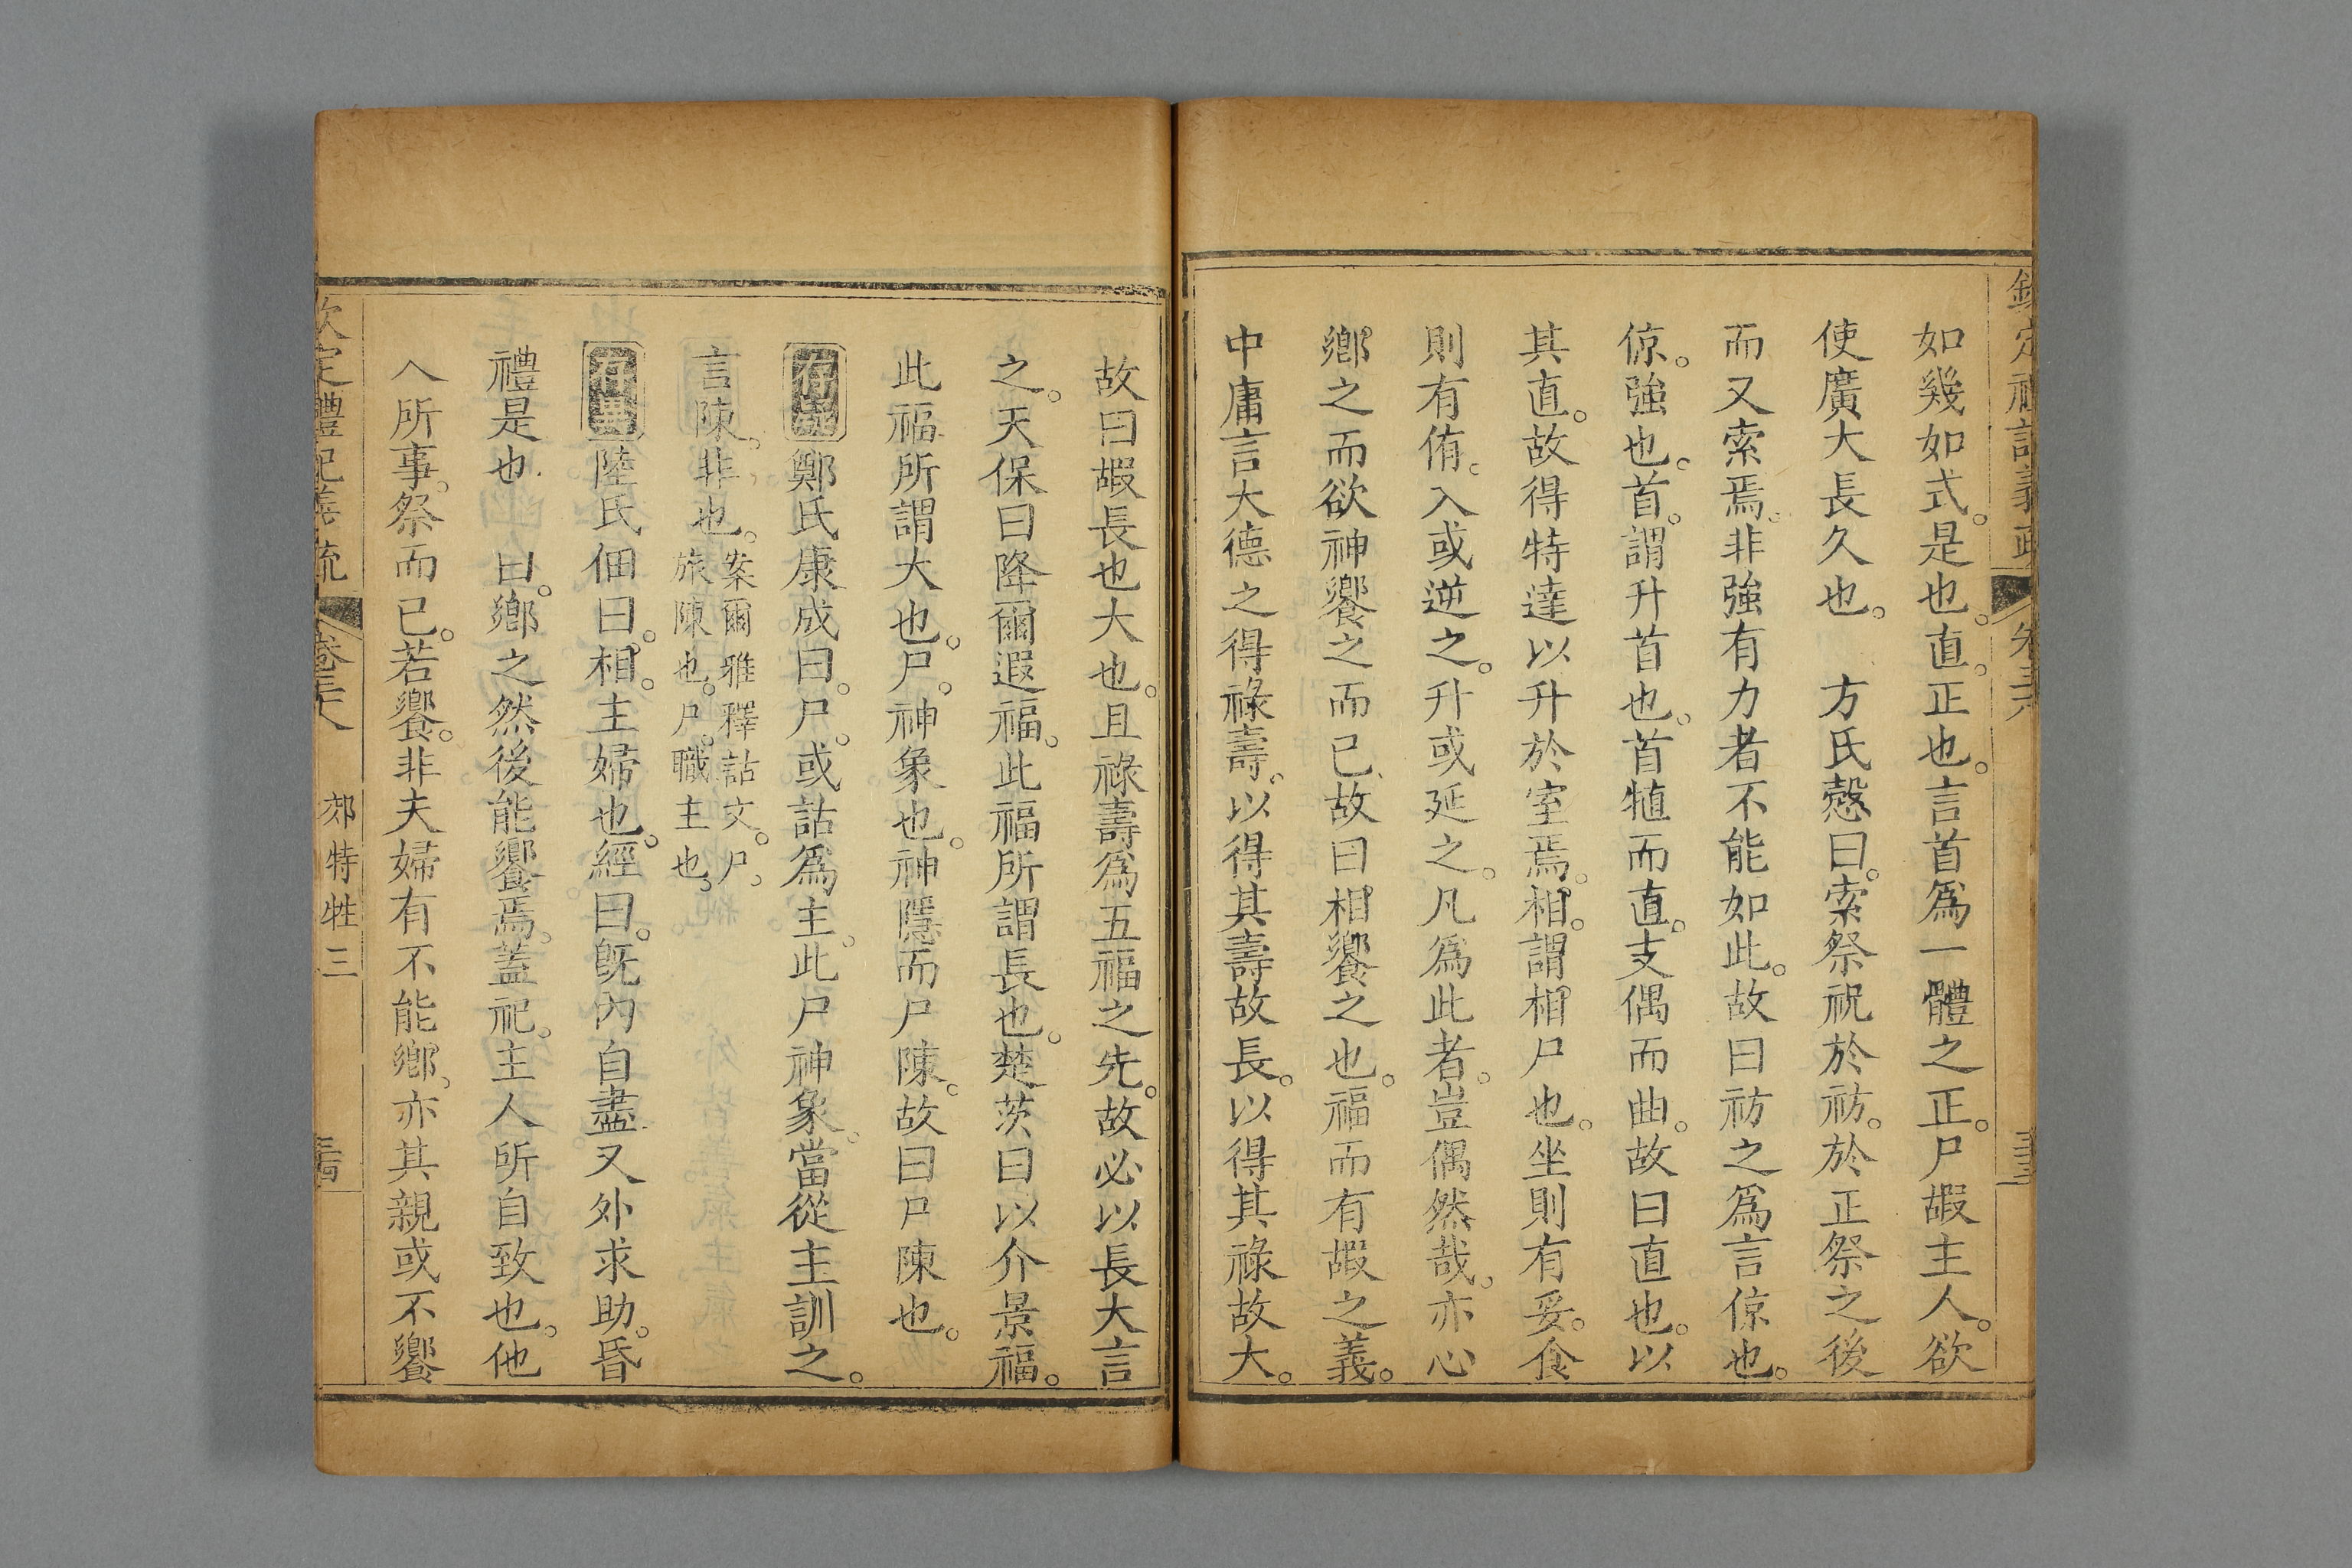 如幾如式。是也。直。正也。言首爲一體之正。尸嘏主人。欲
使廣大長久也。　方氏愨曰。索祭祝於祊。於正祭之後
而又索焉。非強有力者不能如此。故曰祊之爲言倞也。
倞。強也。首。謂升首也。首犆而直。支偶而曲。故曰直也。以
其直。故得特達以升於室焉。相。謂相尸也。坐則有妥。食
則有侑。入或逆之。升或延之。凡爲此者。豈偶然哉。亦心
鄉之而欲神饗之而已。故曰相饗之也。福而有嘏之義。
中庸言大德之得祿壽。以得其壽故長。以得其祿故大。
故曰嘏長也大也。且祿壽爲五福之先。故必以長大言
之。天保曰降爾遐福。此福所謂長也。楚茨曰以介景福。
此福所謂大也。尸。神象也。神隱而尸陳。故曰尸陳也。
存疑鄭氏康成曰。尸。或詁爲主。此尸神象。當從主訓之。
言陳。非也。案爾雅釋詁文。尸。旅陳也。尸。職主也。
存異陸氏佃曰。相。主婦也。經曰。旣內自盡又外求助。昏
禮是也。　曰。鄉之然後能饗焉。蓋祀。主人所自致也。他
人所事。祭而已。若饗。非夫婦有不能鄉。亦其親或不饗
欽定禮記義疏　卷三十八　郊特牲三